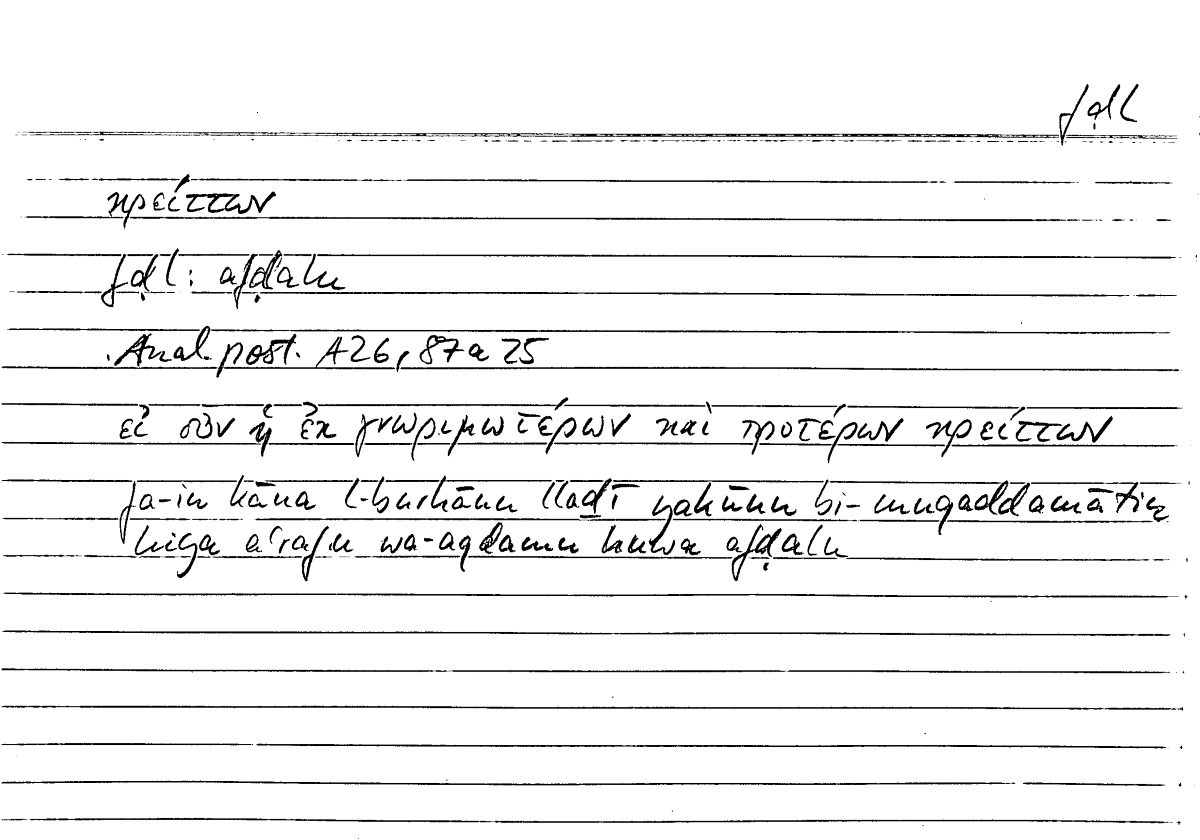 fḍl
κρείττων
fḍl: afḍalu
Anal. post. A26, 87a25
εἰ οὖν ἡ ἐκ γνωριμωτέρων καὶ προτέρων κρείττων
fa-in kāna l-burhānu lladī yakūnu bi-muqaddamātin
hiya aʿrafu wa-aqdamu huwa afḍalu